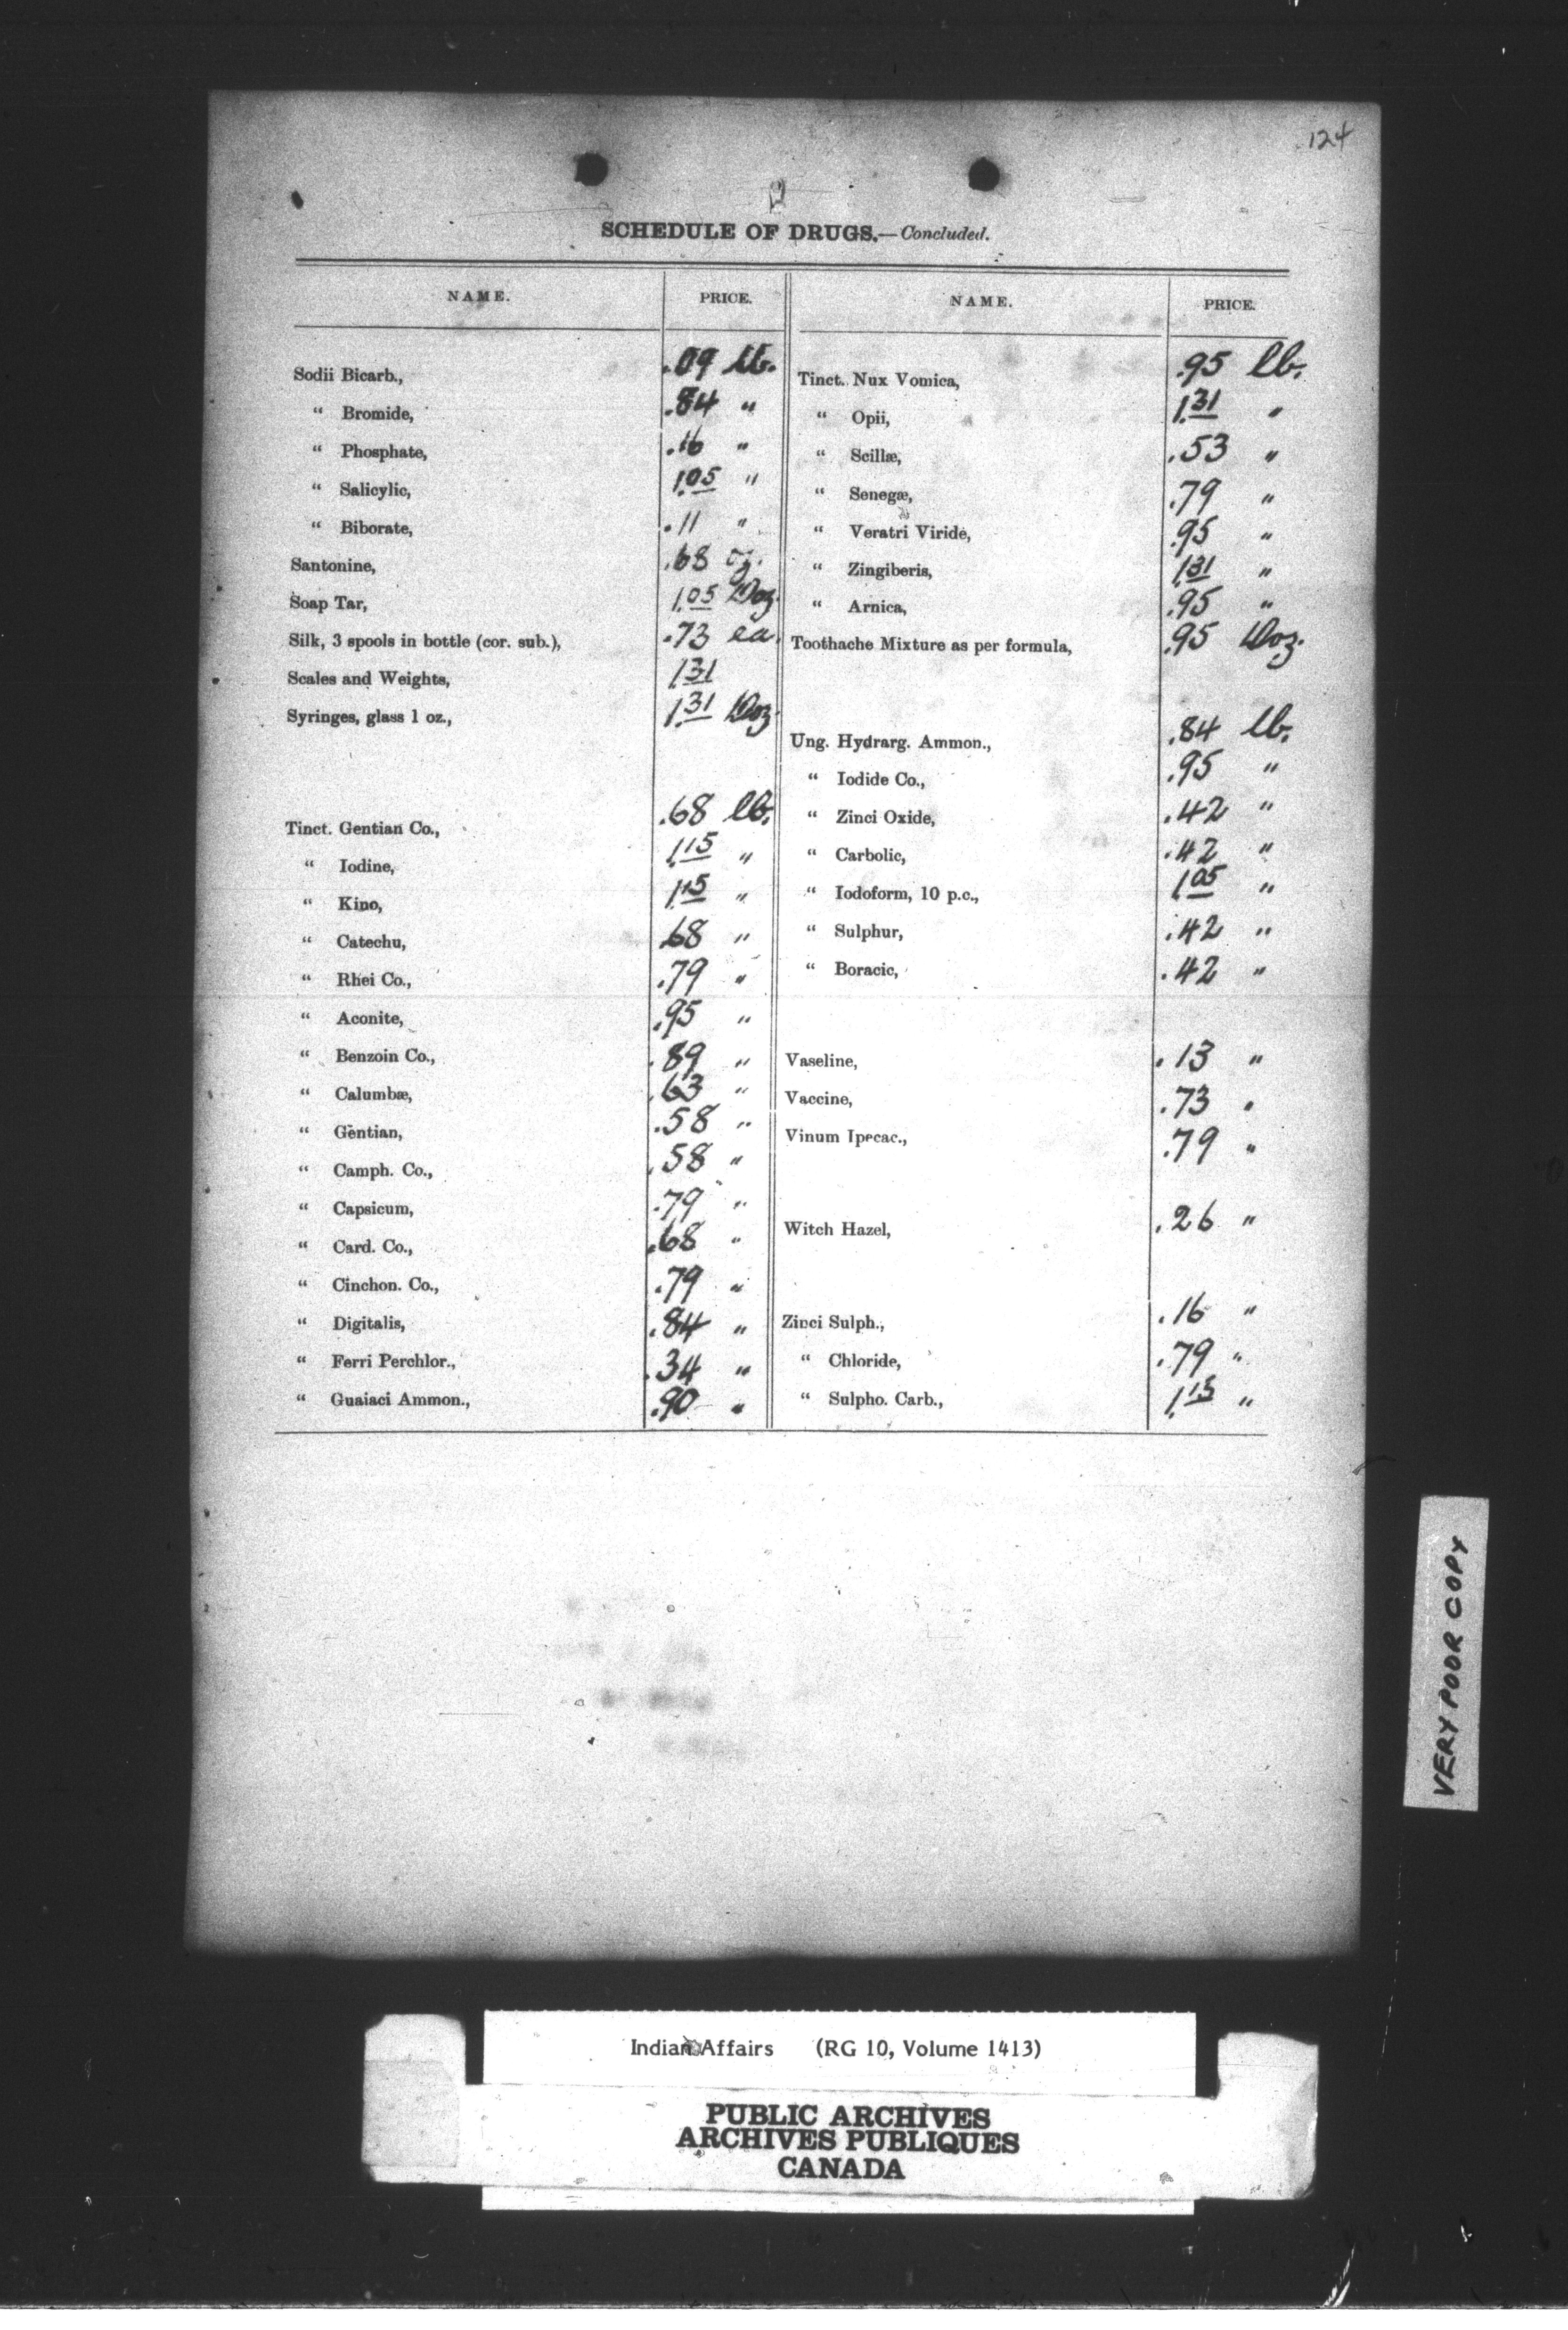 124
SCHEDULE OF DRUGS.—Concluded.
NAME. PRICE.
Sodii Bicarb., .09 lb.
" Bromide, .84 "
" Phosphate, .16 "
" Salicylic, 1.05 "
" Biborate, .11 "
Santonine, .68 oz.
Soap Tar, 1.05 Doz.
Silk, 3 spools in bottle (cor. sub.), .73 ea.
Scales and Weights, 1.31
Syringes, glass 1 oz., 1.31 Doz.
Tinct. Gentian Co., .68 lb.
" Iodine, 1.15 "
" Kino, 1.15 "
" Catechu, .68 "
" Rhei Co., .79 "
" Aconite, .95 "
" Benzoin Co., .89 "
" Calumbæ, .63 "
" Gentian, .58 "
" Camph. Co., .58 "
" Capsicum, .79 "
" Card. Co., .68 "
" Cinchon. Co., .79 "
" Digitalis, .84 "
" Ferri Perchlor., .34 "
" Guaiaci Ammon., .90 "
NAME. PRICE.
Tinct. Nux Vomica, .95 lb.
" Opii, 1.31 "
" Scillæ, .53 "
" Senegæ, .79 "
" Veratri Viride, .95 "
" Zingiberis, 1.31 "
" Arnica, .95 "
Toothache Mixture as per formula, .95 Doz.
Ung. Hydrarg. Ammon., .84 lb.
" Iodide Co., .95 "
" Zinci Oxide, .42 "
" Carbolic, .42 "
" Iodoform, 10 p.c., 1.05 "
" Sulphur, .42 "
" Boracic, .42 "
Vaseline, .13 "
Vaccine, .73 "
Vinum Ipecac., .79 "
Witch Hazel, .26 "
Zinci Sulph., .16 "
" Chloride, .79 "
" Sulpho. Carb., 1.15 "
VERY POOR COPY
Indian Affairs (RG 10, Volume 1413)
PUBLIC ARCHIVES
ARCHIVES PUBLIQUES
CANADA